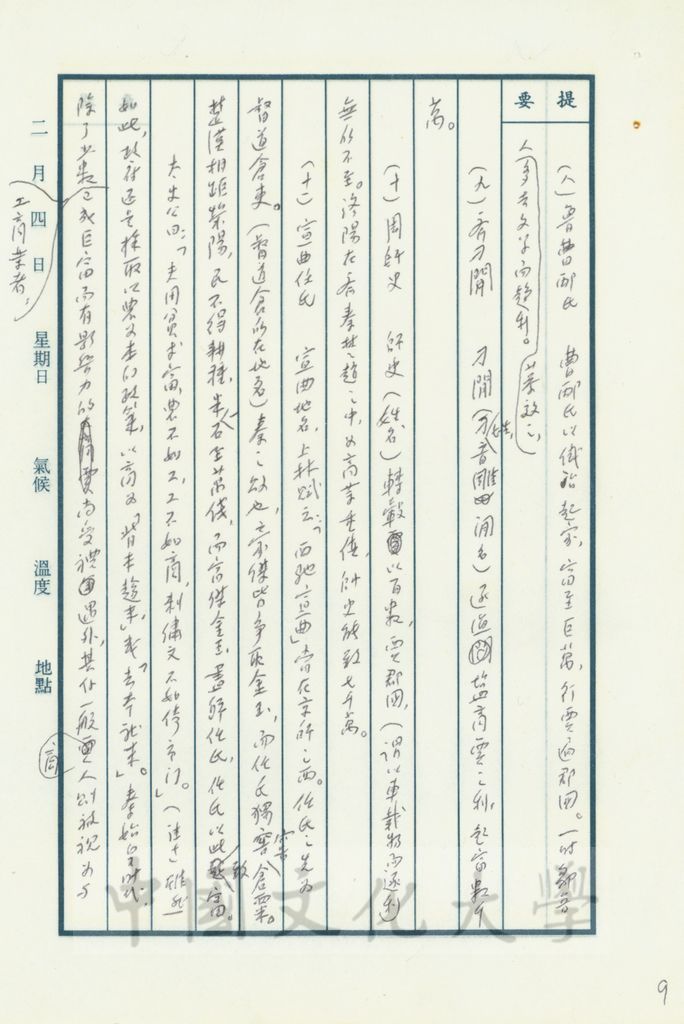 提要
(八) 魯曹邴氏 曹邴氏以鐵冶起家，富至巨萬，行賈遍郡國。一時鄒魯
人多去文學而趨利。
(九) 齊刁閒 刁閒(刁姓，音雕 閒名)逐漁鹽商賈之利，起富數千
萬。
(十) 周師史 師史(姓名)轉轂以百數，賈郡國，(謂以車載物而逐利)
無所不至。洛陽在齊秦楚趙之中，為商業重鎮，師史能致七千萬。
(十一) 宣曲任氏 宣曲地名，上林賦云：「西馳宣曲」當在京師之西。任氏之先為
督道倉吏。(督道倉所在地名)秦之敗也，豪傑皆爭取金玉，而任氏獨窖倉粟。
楚漢相距滎陽，民不得耕種，米石至萬錢，而豪傑金玉盡歸任氏，任氏以此致富。
太史公曰：「夫用貧求富，農不如工，工不如商，刺繡文不如倚市門。」(註七)雖然
如此，政府還是採取以農為本的政策，以商為「背本趨末」或「去本就末」。秦始皇時代，
除了少數已成巨富而有影響力的工商業者，尚受禮遇外，其他一般商人則被視為与
二月四日 星期日 氣候 溫度 地點
中國文化大學
9